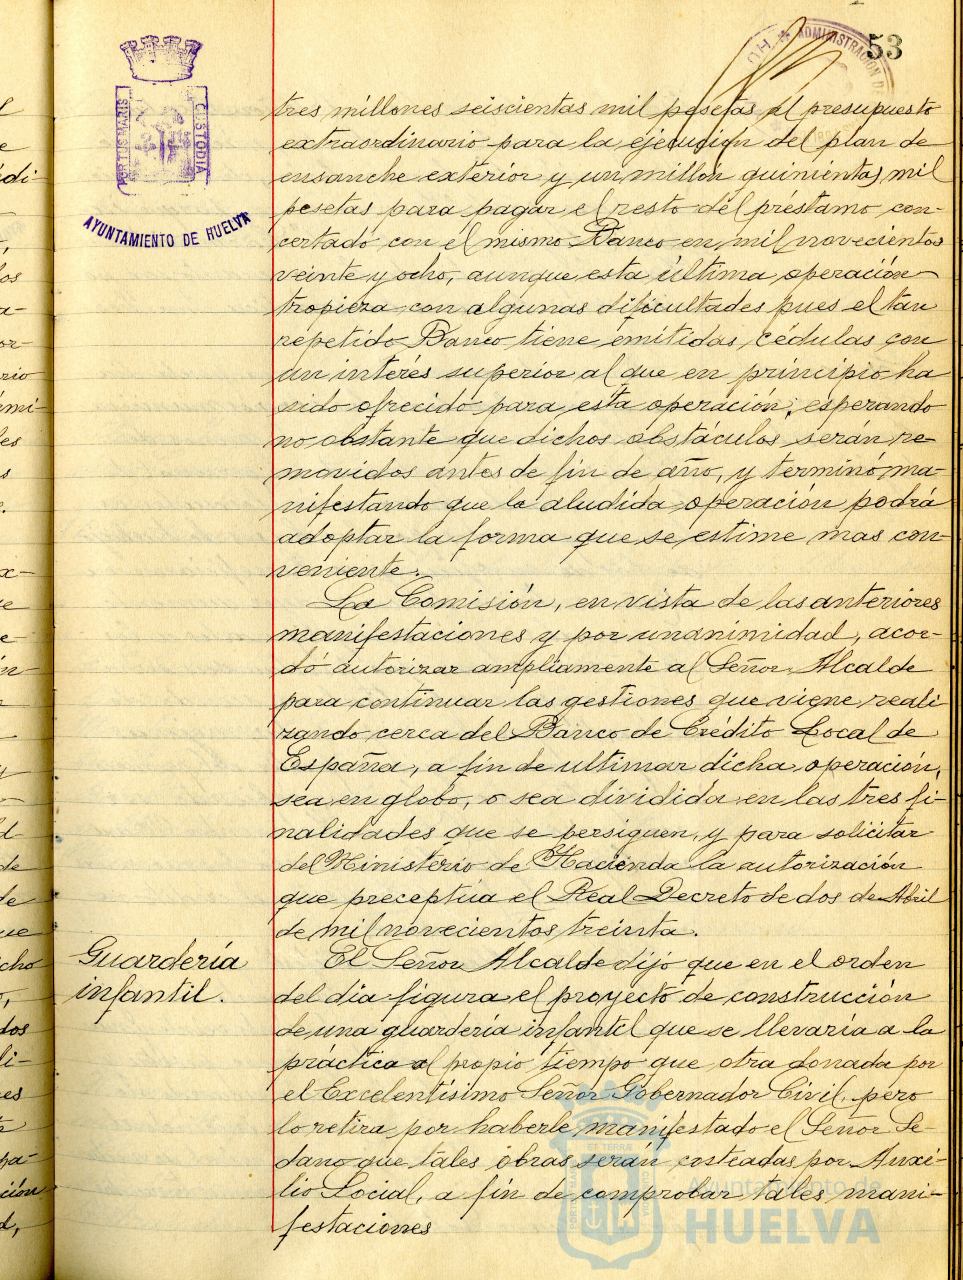 53
ADMINISTRACIÓN
PORTUS MARIS
CUSTODIA
AYUNTAMIENTO DE HUELVA
tres millones seiscientas mil pesetas al presupuesto
extraordinario para la ejecución del plan de
ensanche exterior y un millón quinientas mil
pesetas para pagar el resto del préstamo con-
certado con el mismo Banco en mil novecientos
veinte y ocho, aunque esta última operación
tropieza con algunas dificultades pues el tan
repetido Banco tiene emitidas cédulas con
un interés superior al que en principio ha
sido ofrecido para esta operación, esperando
no obstante que dichos obstáculos serán re-
movidos antes de fin de año, y terminó ma-
nifestando que la aludida operación podrá
adoptar la forma que se estime mas con-
veniente.
La Comisión, en vista de las anteriores
manifestaciones y por unanimidad, acor-
dó autorizar ampliamente al Señor Alcalde
para continuar las gestiones que viene reali
zando cerca del Banco de Crédito Local de
España, a fin de ultimar dicha operación,
sea en globo, o sea dividida en las tres fi-
nalidades que se persiguen, y para solicitar
del Ministerio de Hacienda la autorización
que preceptúa el Real Decreto de dos de Abril
de mil novecientos treinta.
Guardería
infantil.
El Señor Alcalde dijo que en el orden
del día figura el proyecto de construcción
de una guardería infantil que se llevaría a la
práctica al propio tiempo que otra donada por
el Excelentísimo Señor Gobernador Civil, pero
lo retira por haberle manifestado el Señor Se-
dano que tales obras serán costeadas por Auxi-
lio Social, a fin de comprobar tales mani-
festaciones
Ayuntamiento de
HUELVA